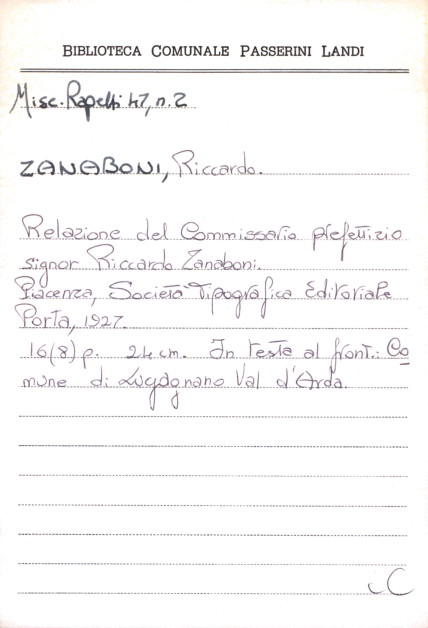 BIBLIOTECA COMUNALE PASSERINI LANDI
Misc. Rapetti 47, n. 2
ZANABONI, Riccardo.
Relazione del Commissario prefettizio
signor Riccardo Zanaboni.
Piacenza, Società Tipografica Editoriale
Porta, 1927.
16(8) p. 24 cm. In testa al front.: Co
mune di Lugagnano Val d'Arda.